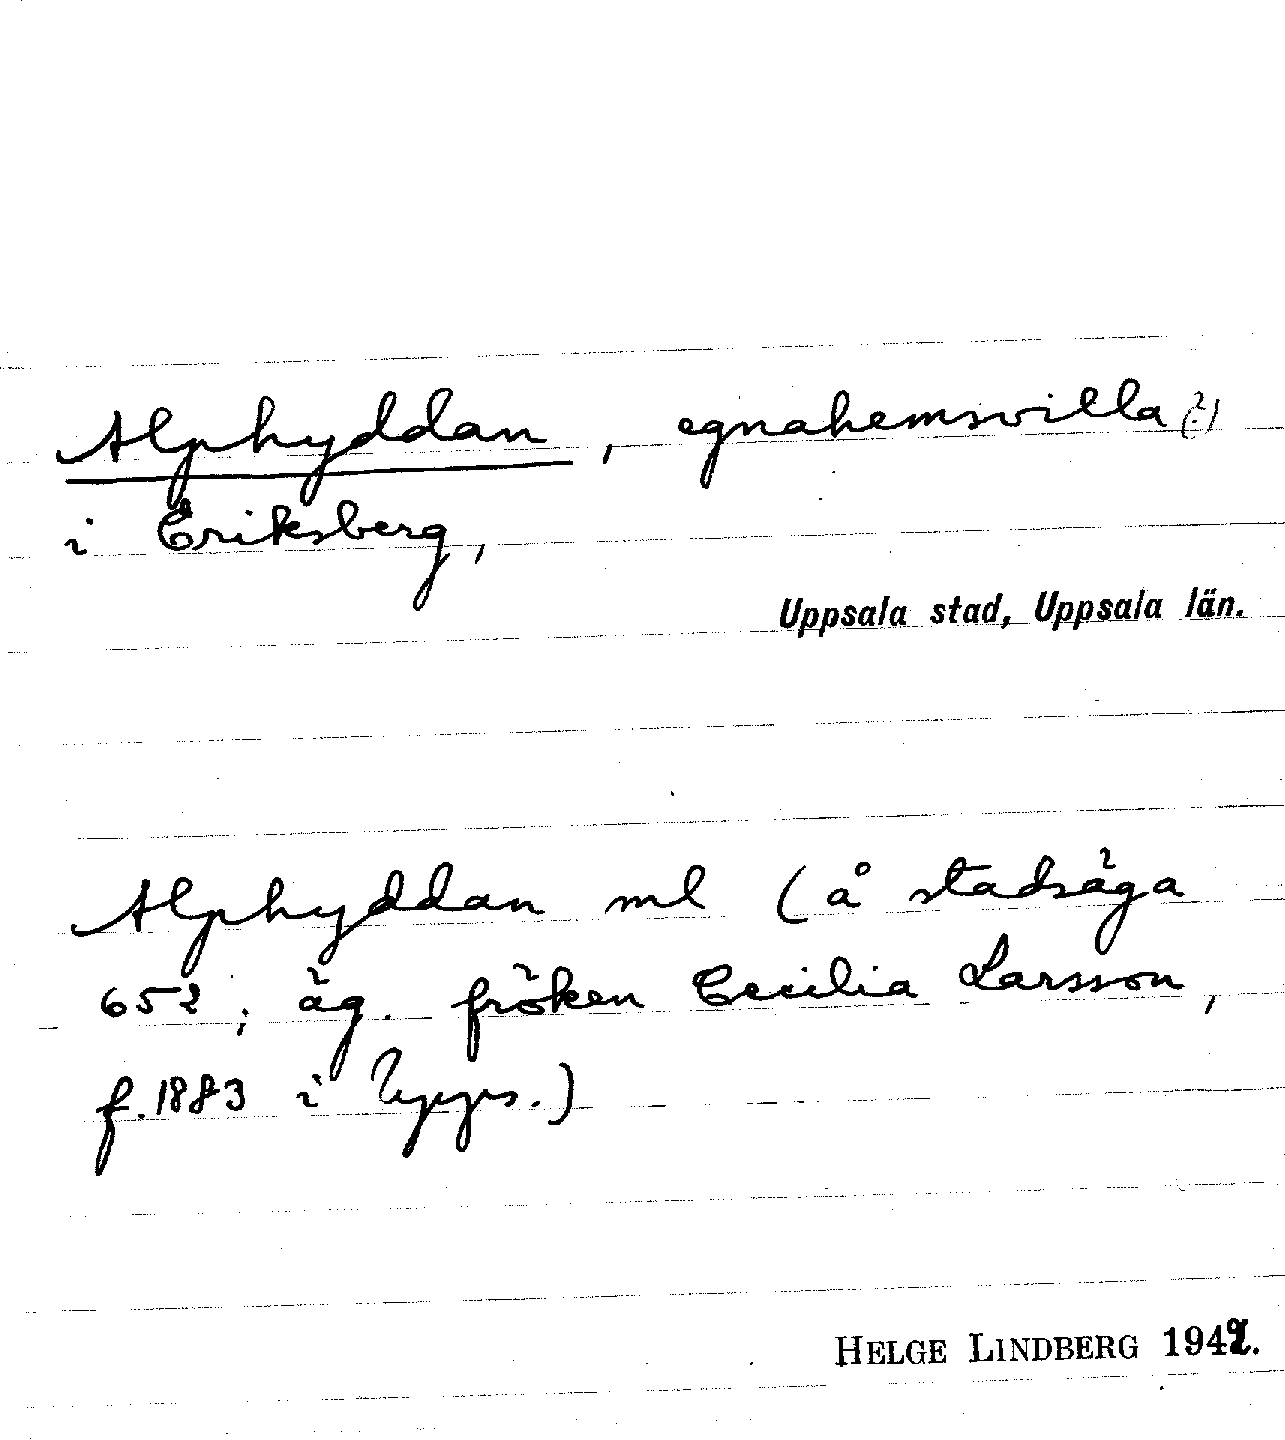 Alphyddan, egnahemsvilla (?)
i Eriksberg,
Uppsala stad, Uppsala län.
Alphyddan ml (å stadsäga
652; äg. fröken Cecilia Larsson,
f. 1883 i Upps.)
HELGE LINDBERG